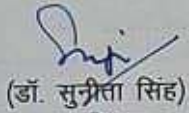 (डॉ. सुनीता सिंह)